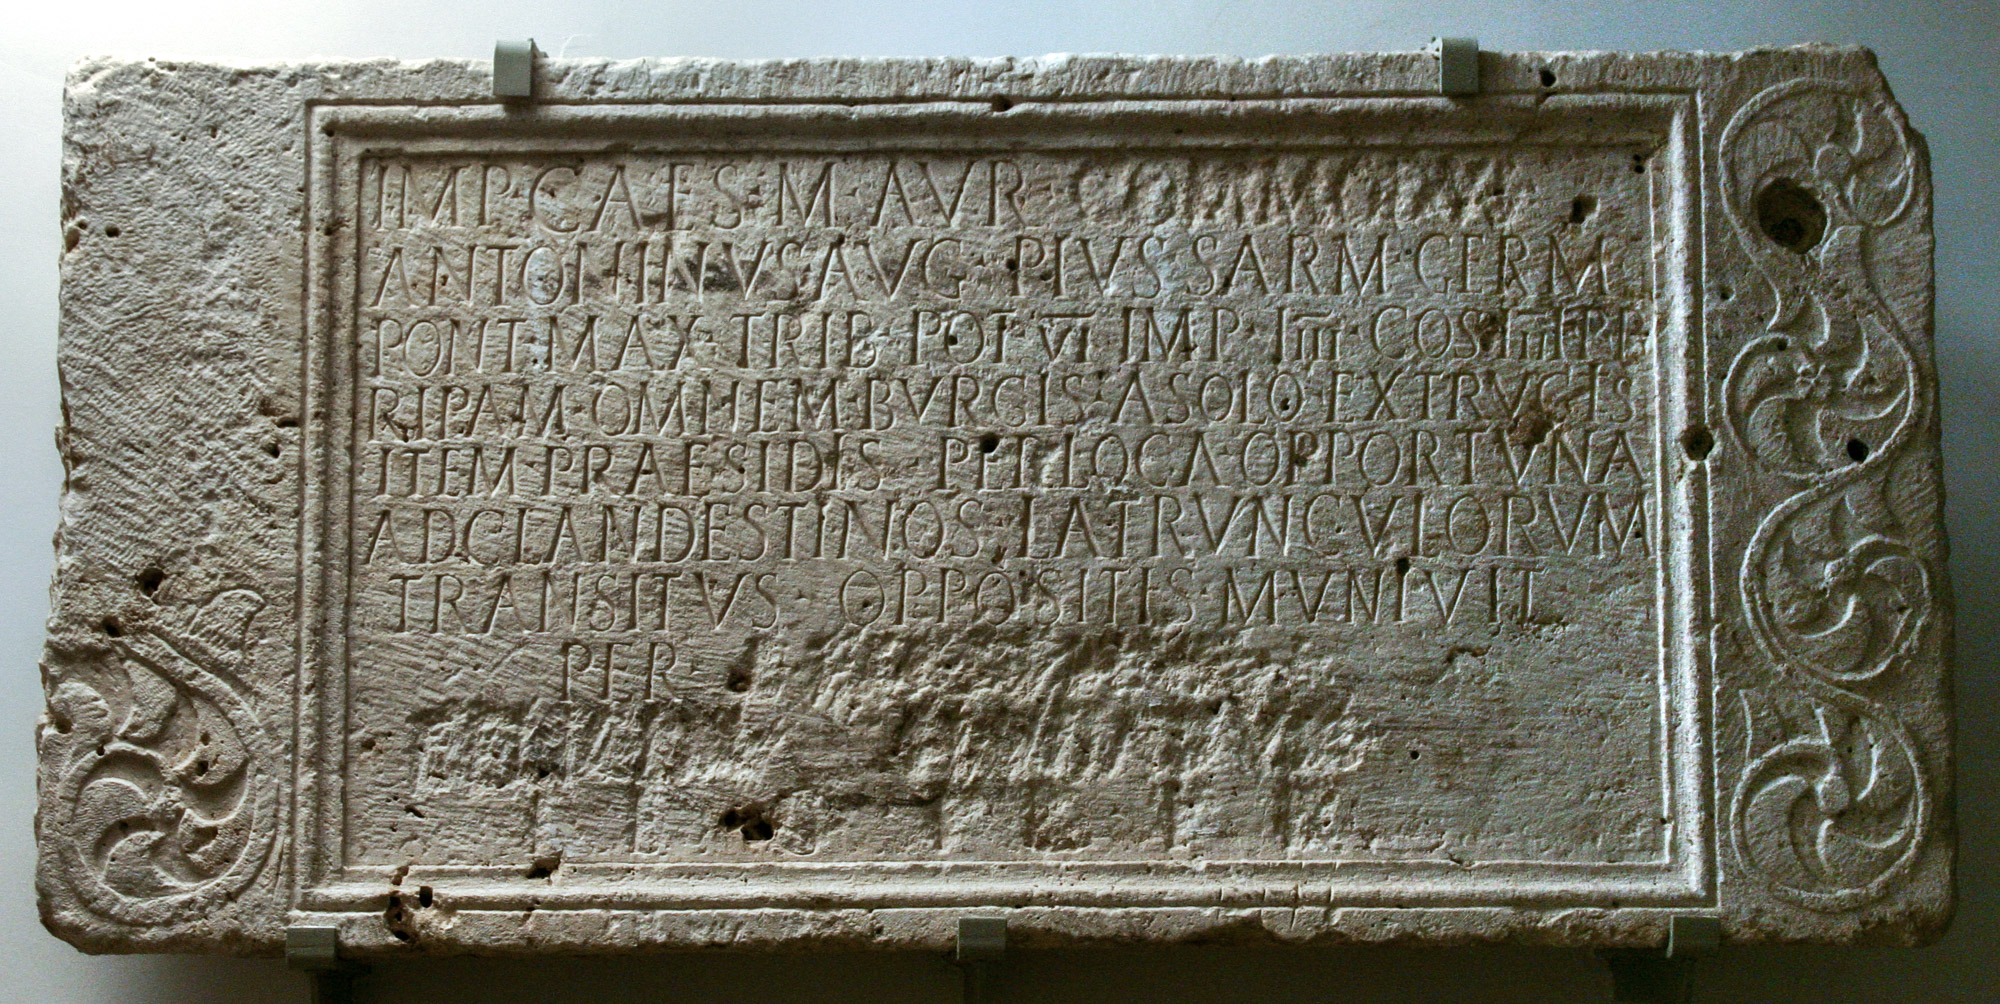 IMP·CAES·M·AVR COMMODVS
ANTONINVS AVG·PIVS SARM·GERM
PONT·MAX·TRIB·POT·VI IMP·IIII COS·IIII P P
RIPAM OMNEM BVRGIS A SOLO EXTRVCTIS
ITEM PRAESIDIS PER LOCA OPPORTVNA
AD CLANDESTINOS LATRVNCVLORVM
TRANSITVS OPPOSITIS MVNIVIT
PER